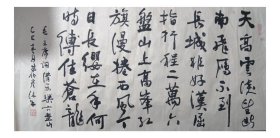 天高雲淡望斷
南飛雁不到
長城非好漢屈
指行程二萬六
盤山上高峰紅
旗漫捲西風今
日長纓在手何
時縛住蒼龍
毛主席詞清平樂六盤山